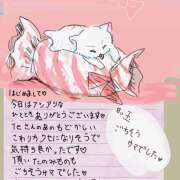 はじめまして♡
今日はアンアツな
ひとときありがとうございます♡
さんのあのもどかしい
こわりカクセになりそうで
気持ち良かったです♡
頂いたのみものも
ごちそうサマでした♡
ごちそう
サマでした♡